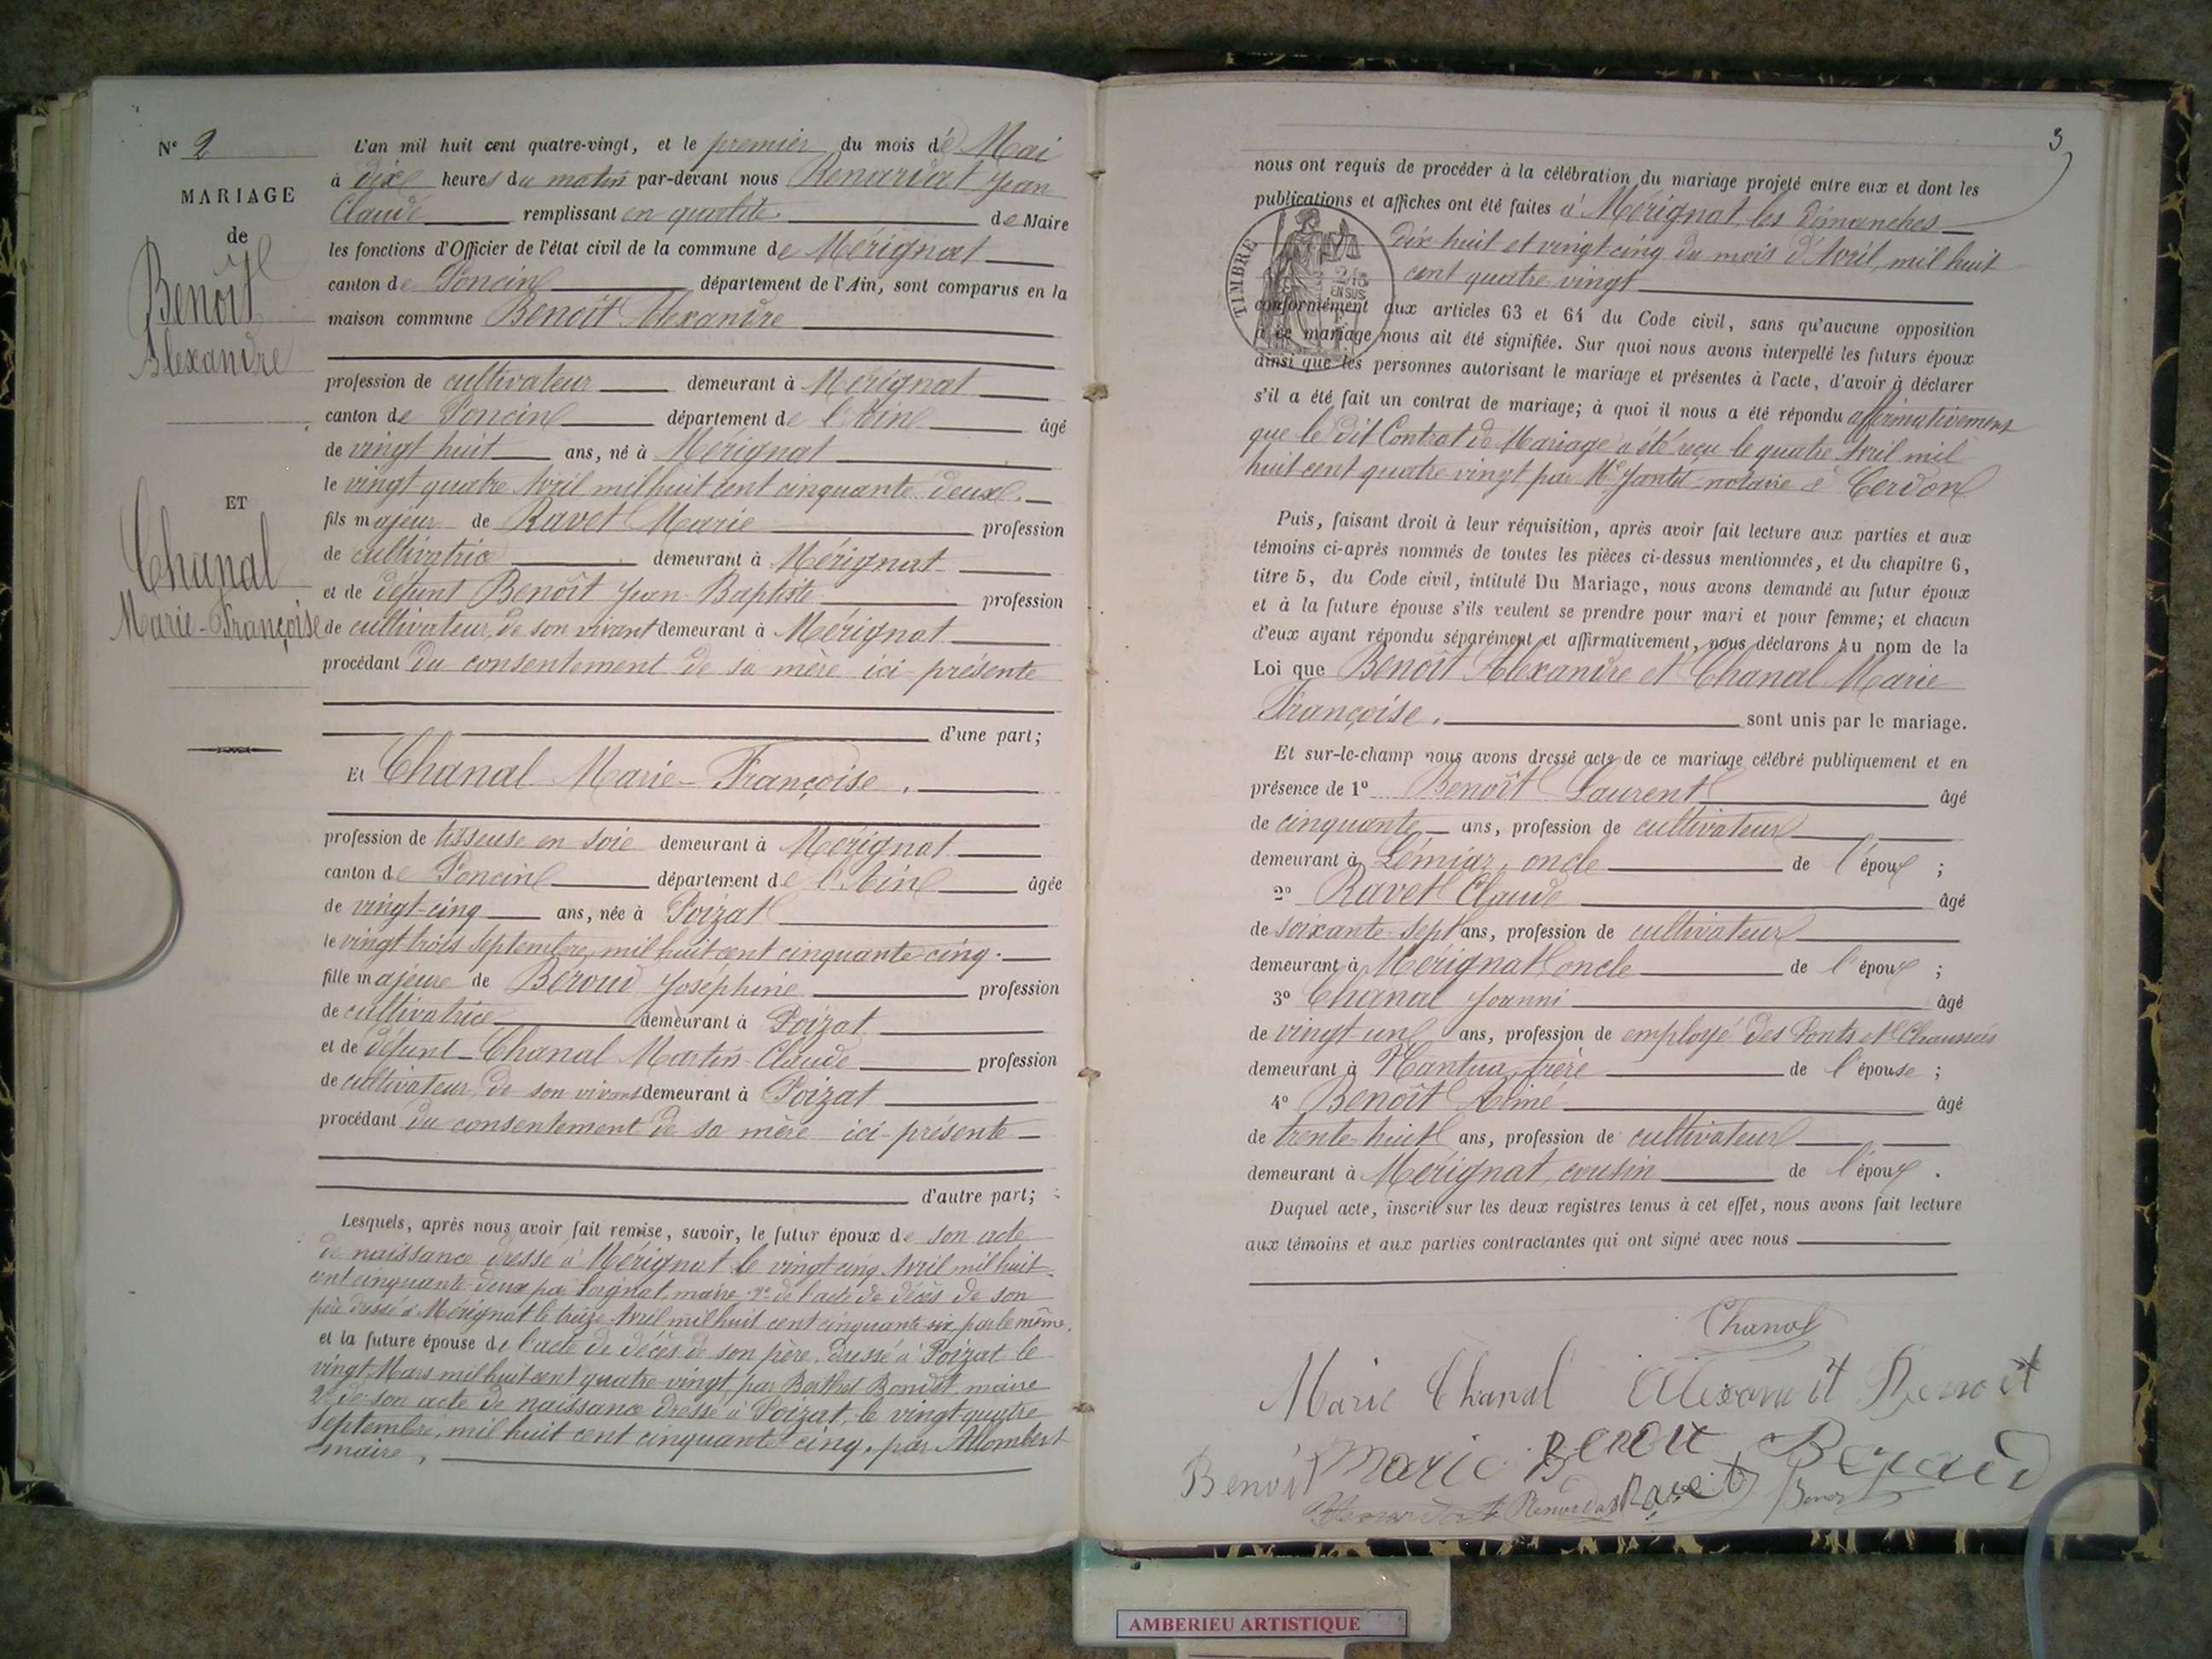 N° 2
MARIAGE
de
Benoît
Alexandre
ET
Chanal
Marie-Françoise
L'an mil huit cent quatre-vingt, et le premier du mois de Mai
à dix heures du matin par-devant nous Renardat Jean
Claude remplissant en qualité de Maire
les fonctions d'Officier de l'état civil de la commune de Mérignat
canton de Poncin département de l'Ain, sont comparus en la
maison commune Benoît Alexandre
profession de cultivateur demeurant à Mérignat
canton de Poncin département de l'Ain âgé
de vingt huit ans, né à Mérignat
le vingt quatre Avril mil huit cent cinquante deux.
fils majeur de Ravet Marie profession
de cultivatrice demeurant à Mérignat
et de défunt Benoît Jean-Baptiste profession
de cultivateur, de son vivant demeurant à Mérignat
procédant du consentement de sa mère ici présente
d'une part;
Et Chanal Marie-Françoise.
profession de tisseuse en soie demeurant à Mérignat
canton de Poncin département de l'Ain âgée
de vingt-cinq ans, née à Poizat
le vingt trois Septembre, mil huit cent cinquante-cinq.
fille majeure de Beroud Joséphine profession
de cultivatrice demeurant à Poizat
et de défunt Chanal Martin-Claude profession
de cultivateur, de son vivant demeurant à Poizat
procédant du consentement de sa mère ici présente
d'autre part;
Lesquels, après nous avoir fait remise, savoir, le futur époux de son acte
de naissance dressé à Mérignat le vingt cinq Avril mil huit
cent cinquante deux par Soignat, maire 2° de l'acte de décès de son
père dressé à Mérignat le treize Avril mil huit cent cinquante six, par le même.
et la future épouse de l'acte de décès de son père, dressé à Poizat le
vingt Mars mil huit cent quatre vingt, par Berthet Bondet, maire
2° de son acte de naissance dressé à Poizat, le vingt-quatre
Septembre, mil huit cent cinquante cinq, par Allombert
maire.
3
nous ont requis de procéder à la célébration du mariage projeté entre eux et dont les
publications et affiches ont été faites à Mérignat, les dimanches
dix huit et vingt cinq du mois d'Avril, mil huit
cent quatre vingt
TIMBRE
2/10
EN SUS
conformément aux articles 63 et 64 du Code civil, sans qu'aucune opposition
à ce mariage nous ait été signifiée. Sur quoi nous avons interpellé les futurs époux
ainsi que les personnes autorisant le mariage et présentes à l'acte, d'avoir à déclarer
s'il a été fait un contrat de mariage; à quoi il nous a été répondu affirmativement
que le dit Contrat de Mariage a été reçu le quatre Avril mil
huit cent quatre vingt par Me Jantet notaire à Cerdon
Puis, faisant droit à leur réquisition, après avoir fait lecture aux parties et aux
témoins ci-après nommés de toutes les pièces ci-dessus mentionnées, et du chapitre 6,
titre 5, du Code civil, intitulé Du Mariage, nous avons demandé au futur époux
et à la future épouse s'ils veulent se prendre pour mari et pour femme; et chacun
d'eux ayant répondu séparément et affirmativement, nous déclarons Au nom de la
Loi que Benoît Alexandre et Chanal Marie
Françoise. sont unis par le mariage.
Et sur-le-champ nous avons dressé acte de ce mariage célébré publiquement et en
présence de 1° Benoît Laurent âgé
de cinquante ans, profession de cultivateur
demeurant à Lémiaz, oncle de l'époux ;
2° Ravet Claude âgé
de soixante-sept ans, profession de cultivateur
demeurant à Mérignat oncle de l'époux ;
3° Chanal Joanni âgé
de vingt un ans, profession de employé des Ponts et Chaussées
demeurant à Nantua, frère de l'épouse ;
4° Benoît Aimé âgé
de trente-huit ans, profession de cultivateur
demeurant à Mérignat, cousin de l'époux.
Duquel acte, inscrit sur les deux registres tenus à cet effet, nous avons fait lecture
aux témoins et aux parties contractantes qui ont signé avec nous
Chanal
Marie Chanal Benoit
Benoît Marie Benoit
Renardat Ravet
AMBERIEU ARTISTIQUE